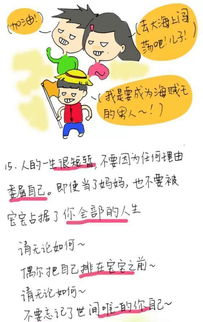 加油!
去大海上闯
荡吧!儿子!
我是要成为海贼王
的男人~!
15.人的一生很短暂,不要因为任何理由
委屈自己。即使当了妈妈,也不要被
宝宝占据了你全部的人生
请无论如何~
偶尔把自己排在宝宝之前~
请无论如何~
不要忘记了世间唯一的你自己~